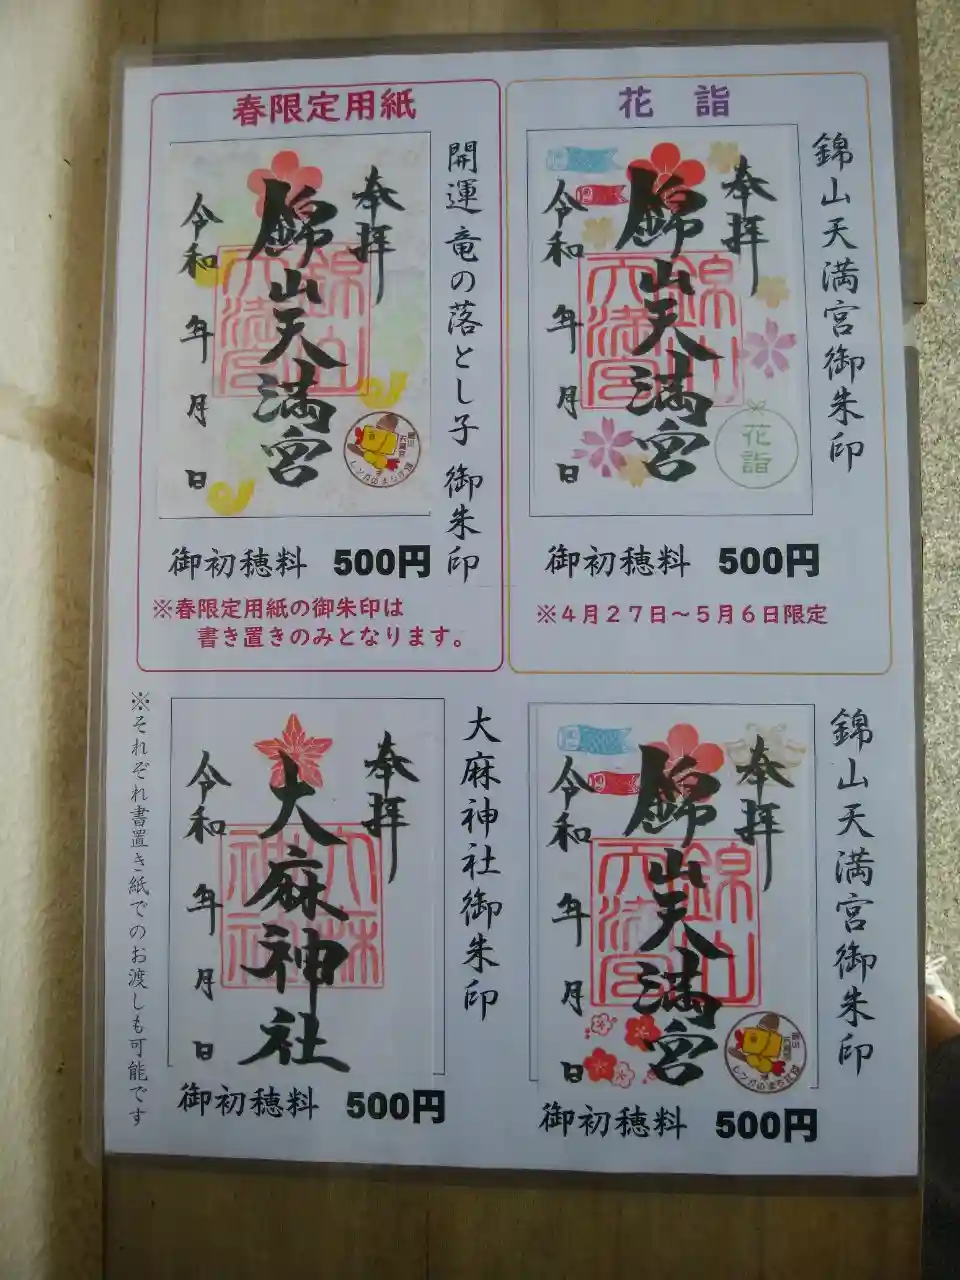 春限定用紙
開運竜の落とし子 御朱印
奉拝
錦山天満宮
令和 年 月 日
御初穂料 500円
※春限定用紙の御朱印は
書き置きのみとなります。
花詣
錦山天満宮御朱印
奉拝
錦山天満宮
令和 年 月 日
花詣
御初穂料 500円
※4月27日~5月6日限定
大麻神社御朱印
奉拝
大麻神社
令和 年 月 日
御初穂料 500円
錦山天満宮御朱印
奉拝
錦山天満宮
令和 年 月 日
御初穂料 500円
※それぞれ書置き紙でのお渡しも可能です